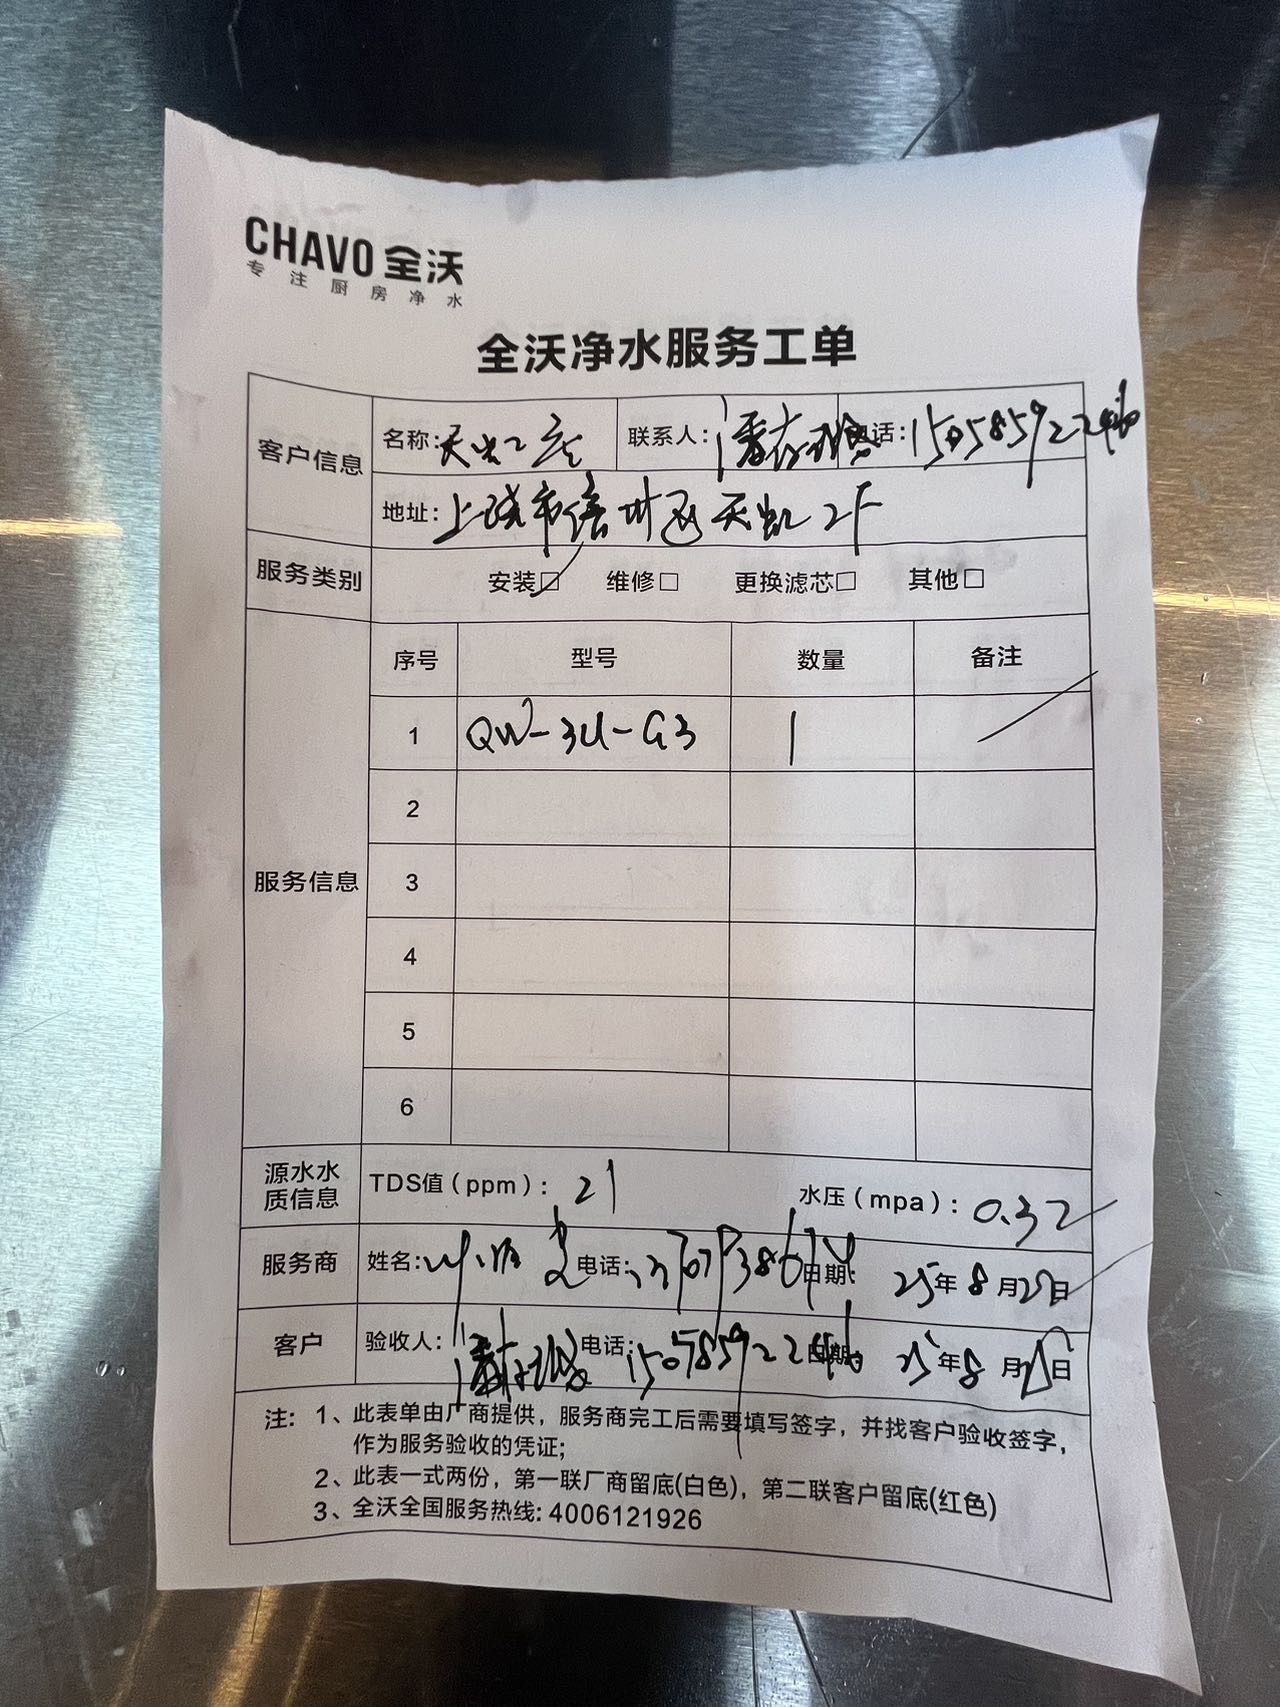 CHAVO 全沃
专注厨房净水
全沃净水服务工单
客户信息
名称: 天虹2店 联系人: 电话: 15058592246
地址: 上饶市信州区天虹2F
服务类别 安装☑ 维修□ 更换滤芯□ 其他□
服务信息
序号 型号 数量 备注
1 QW-3U-G3 1 /
2
3
4
5
6
源水水质信息 TDS值（ppm）: 21 水压（mpa）: 0.32
服务商 姓名: 电话: 日期: 25年8月
客户 验收人: 电话: 日期: 25年8月
注: 1、此表单由厂商提供，服务商完工后需要填写签字，并找客户验收签字，
作为服务验收的凭证;
2、此表一式两份，第一联厂商留底(白色)，第二联客户留底(红色)
3、全沃全国服务热线: 4006121926